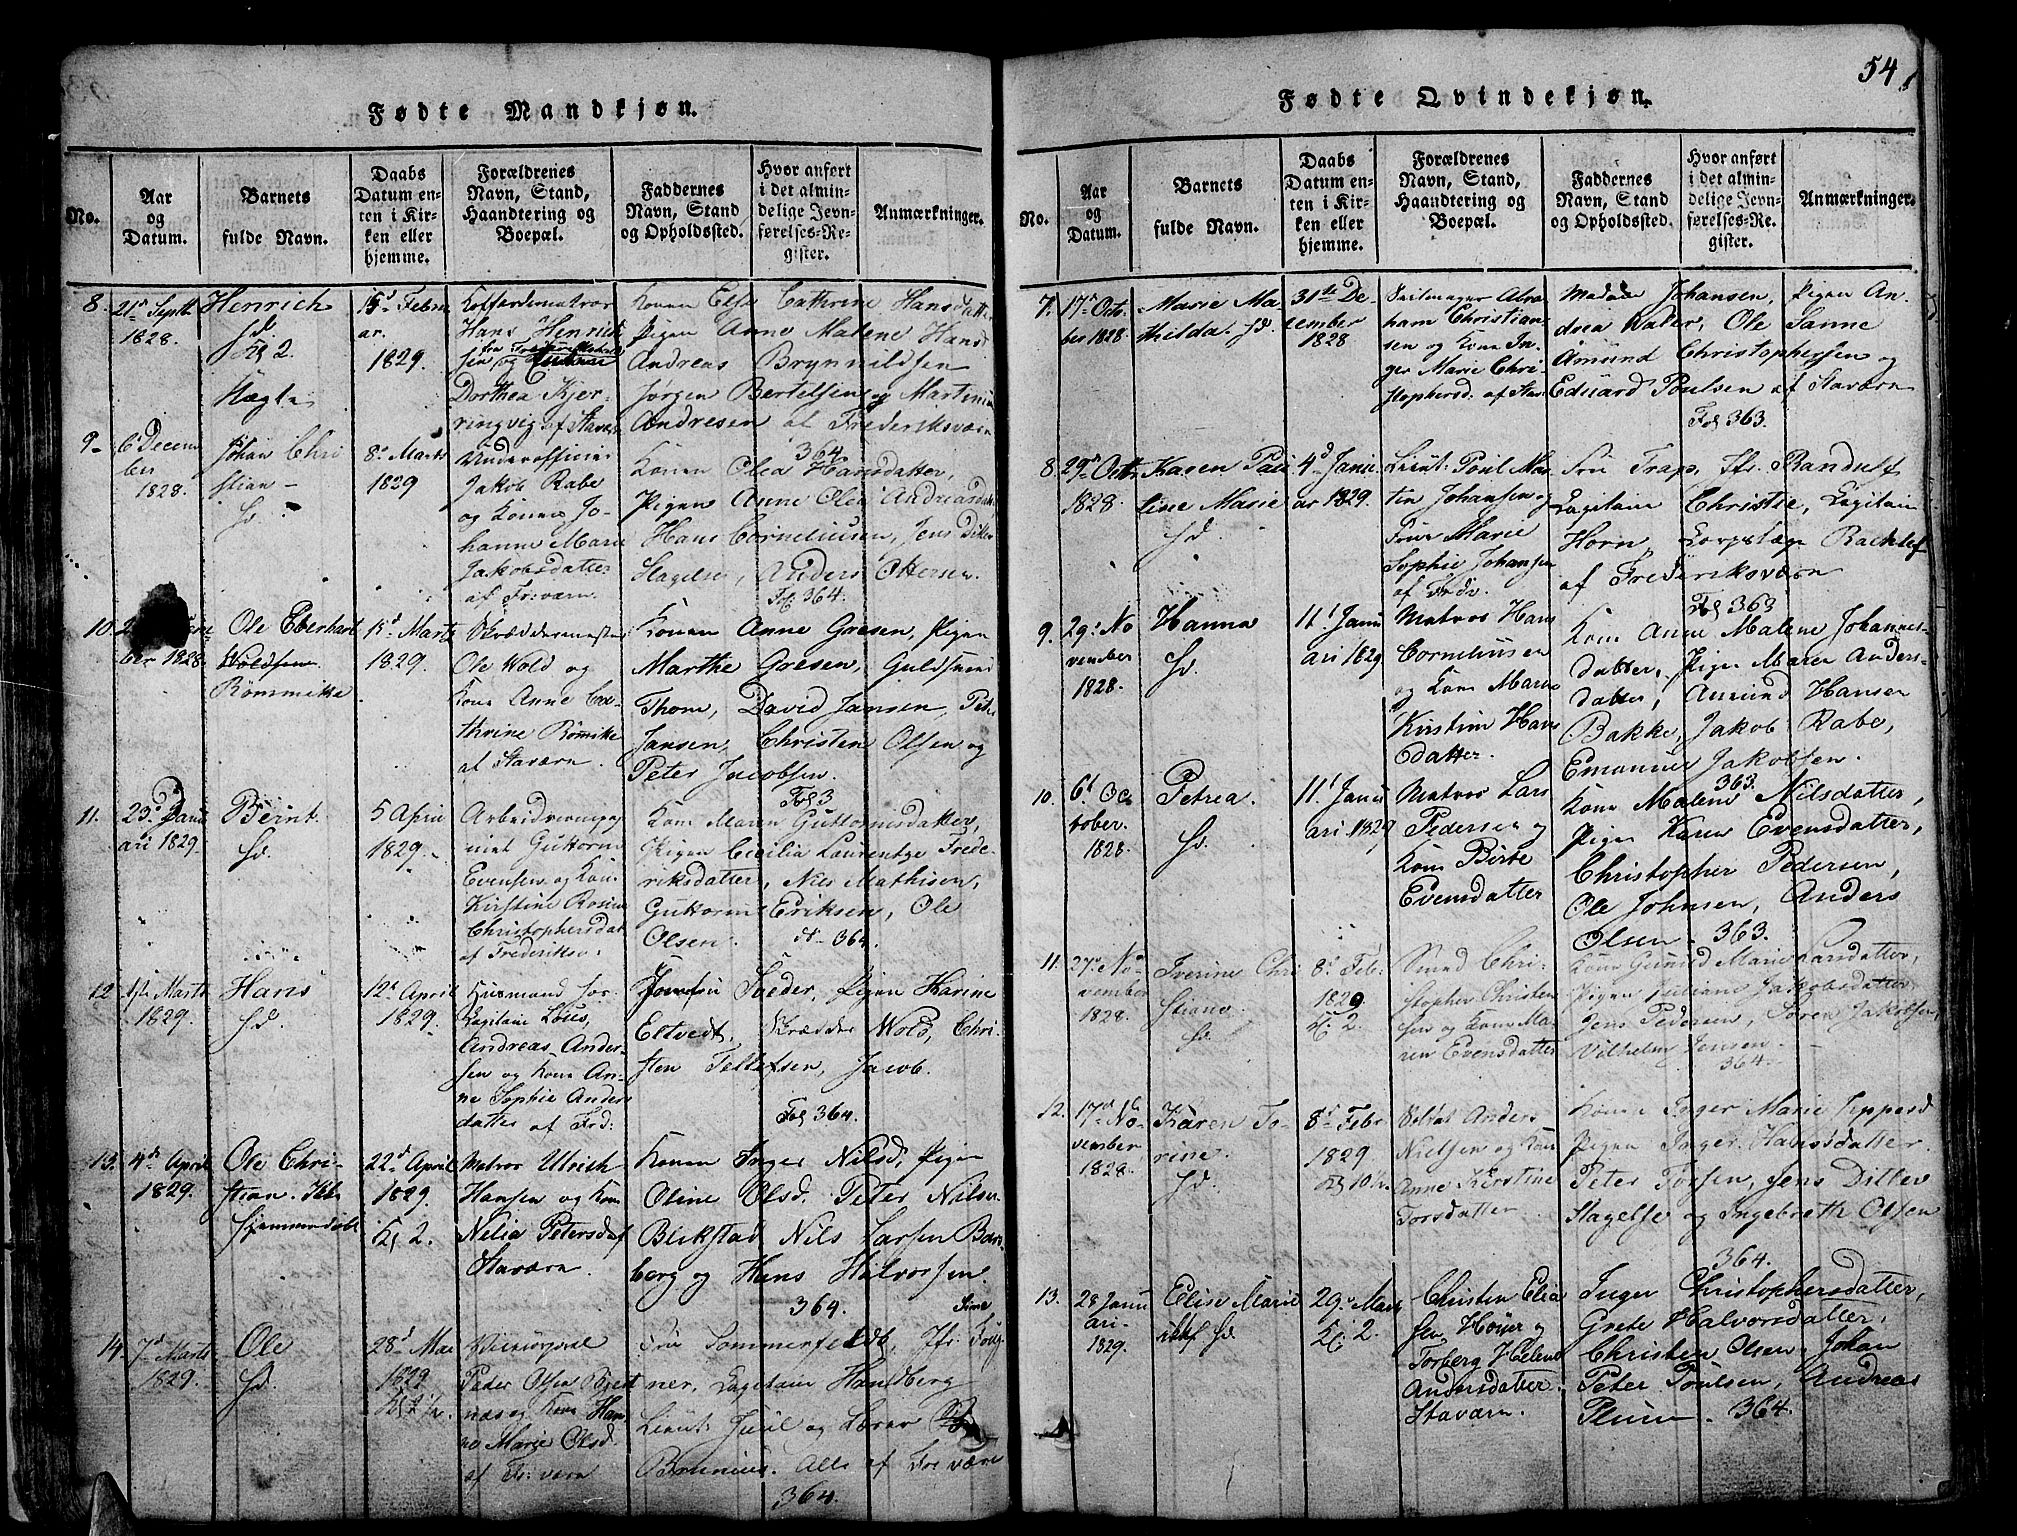 Fødte Mandkjøn.
No.
Aar
og
Datum.
Barnets
fulde Navn.
Daabs
Datum en-
ten i Kir-
ken eller
hjemme.
Forældrenes
Navn, Stand,
Haandtering og
Boepæl.
Faddernes
Navn, Stand
og Opholdssted.
Hvor anført
i det almin-
delige Jevn-
førelses-Re-
gister.
Anmærkninger.
8.
21d Septb
1828.
Henrich
hd.
Kl 2.
Uægte
15d Febru
ar.
1829.
Hans Henrich
sen og
Dorthea Kjer-
ringvig af Staværn
Konen Else Cathrine Hansdatter
Pigen Anne Malene Hans
Andreas Brynnildsen
Jørgen Bertelsen og Martinius
Andresen af Frederiksværn
364.
9.
6d Decem
ber
1828.
Johan Chri
stian
hd.
8d Marts
1829
Underofficeer
Jakob Rabe
og Konen Jo-
hanne Marie
Jakobsdatter
af Fr:værn.
Konen Olea Hansdatter,
Pigen Anne Olea Andreasdatter
Hans Corneliusen, Jens Ditlev
Slagelse, Anders Ottersen.
Fol 364.
10.
ber 1828.
Ole Eberhart
Woldsen
Römmike
15d Marts
1829.
Skræddermester
Ole Wold og
Kone Anne Ca-
thrine Römike
af Staværn.
Konen Anne Gresen, Pigen
Marthe Gresen, Guldsmed
Thom, David Jansen, Petr
Jansen, Christen Olsen og
Peter Jacobsen.
Fol 3
11.
23d Janu
ari 1829.
Bernt.
hd.
5 April
1829.
Guttorm
Evensen og Kone
Kirstine Rosine
Christophersdat
af Frederiksv:
Kone Maren Guttormsdatter,
Pigen Cicilia Laurentze Frede-
riksdatter, Nils Mathisen,
Guttorm Eriksen, Ole
Olsen.
364.
12
Marts
1829.
Hans
hd.
12d April
1829.
Huusmand for
Capitain Lous,
Andreas Ander-
sen og Kone An-
ne Sophie Anders
datter af Frd:
Sveder, Pigen Karine
Eltvedt, Skrædder Wold, Chri-
sten Tellefsen, Jacob.
Fol 364.
13.
4d April
1829.
Ole Chri-
stian.
hjemmedøbt
22d April
1829.
Kl 2.
Matros Ulrich
Hansen og Kone
Nelia Petersdat
Staværn.
Konen Inger Nilsd, Pigen
Oline Olsd. Peter Nilsen
Blikstad Nils Larsen Bom-
berg og Hans Halvorsen.
364.
14.
7d Marts
1829.
Ole
hd.
28d Mai
1829
Peder Olsen
og Kone Han-
ne Marie Olsd.
af Fr:værn
Fru Sommerfeldt, Jfr:
ner, Capitain Handberg
Lieut: Juul og Lærer
Brunius. Alle af Fre værn
364.
54
Fødte Qvindekjøn.
No.
Aar
og
Datum.
Barnets
fulde Navn.
Daabs
Datum en-
ten i Kir-
ken eller
hjemme.
Forældrenes
Navn, Stand,
Haandtering og
Boepæl.
Faddernes
Navn, Stand
og Opholdssted.
Hvor anført
i det almin-
delige Jevn-
førelses-Re-
gister.
Anmærkninger.
7.
17d Octo-
ber 1828.
Marie Ma-
thilda. hd.
31te De-
cember
1828
Seilmager Abra
ham Christian-
sen og Kone In-
ger Marie Chri-
stophersd. af Stav
Madam Johansen, Pigen An-
drea Water, Ole Sanne
Amund Christophersen og
Eduard Poulsen af Staværn
Fol 363.
8.
29d Octbr
1828.
Karen Pau
line Marie
hd.
4d Janu
ar 1829.
Lieut: Poul Mar
tin Johansen og
Frue Marie
Sophie Johansen
af Frdv.
Fru Trap, Jfr. Randulf
Capitain Christie, Capitain
Horn, Corpslæge Rachlef
af Frederiksværn
Fol 363
9.
29d No
vember
1828.
Hanna
hd.
11t Janu
ari 1829
Matros Hans
Corneliusen
og Kone Maren
Kirstine Hans
datter.
Kone Anne Malene Johannes-
datter, Pigen Maren Anders-
datter, Amund Hansen
Bakke, Jakob Rabe,
Emanuel Jakobsen.
363.
10.
6d Oc
tober.
1828.
Petrea.
hd.
11t Janu
ari 1829
Matros Lars
Pedersen og
Kone Birte
Evensdatter
Kone Malene Nilsdatter,
Pigen Karen Evensdatter,
Christopher Pedersen,
Ole Johnsen, Anders
Olsen. 363.
11.
27d No
vember
1828.
Iverine Chri
stiane
hd.
8d Feb:
1829
Kl. 2.
Smed Chri-
stopher Christen
sen og Kone Ma-
ren Evensdatter
Kone Gunild Marie Larsdatter,
Pigen Juliane Jakobsdatter,
Jens Pedersen, Søren Jakobsen,
Vilhelm Jensen.
364.
12.
17d No
vember
1828.
Karen To-
rine.
hd.
8d Febr
1829.
Kl 10½.
Soldat Anders
Nielsen og Kone
Anne Kirstine
Torsdatter
Kone Inger Marie Jeppesd
Pigen Inger Hansdatter
Peter Torsen, Jens Ditlev
Slagelse og Ingebreth Olsen
364.
13.
28 Janu
ari-
1829.
Elise Marie
hd
29d Mar
Kl. 2.
Christen Elia
sen Höijer og
Torberg Helene
Andersdatter
Staværn.
Inger Christophersdatter,
Grete Halvorsdatter,
Christen Olsen, Johan
Peter Poulsen, Andreas
Plum. 364.